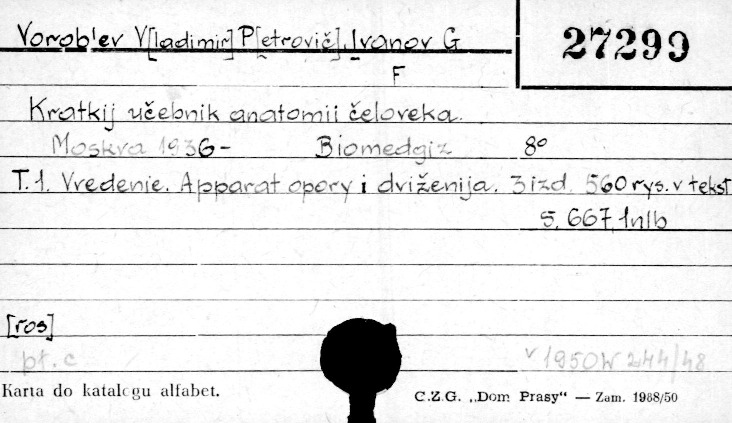 Vorob'ev V[ladimir] P[etrovič], Ivanov G
27299
F
Kratkij učebnik anatomii čeloveka.
Moskva 1936- Biomedgiz 8°
T.1. Vvedenie. Apparat opory i dviženija. 3 izd. 560 rys. v tekst
s. 667, 1nlb
[ros]
pt. c v 1950 W 244/48
Karta do katalogu alfabet.
C.Z.G. „Dom Prasy“ — Zam. 1988/50